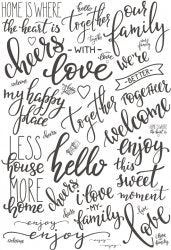 HOME IS WHERE
the heart is
hello
together
our
family
cheers
-WITH-
love
we're
BETTER
together
my
happy
place
together
welcome
LESS
house
MORE
home
hello
enjoy
this
sweet
moment
cheers
i love
-MY-
family
love
enjoy
enjoy
welcome